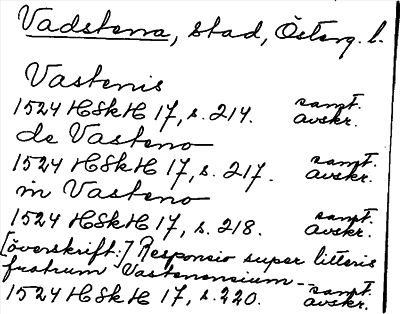 Vadstena, stad, Österg. l.
Vastenis
1524 HSkH 17, s. 214. samt. avskr.
de Vasteno
1524 HSkH 17, s. 217. samt. avskr.
in Vasteno
1524 HSkH 17, s. 218. samt. avskr.
[överskrift:] Responsio super litteris
fratrum Vastenensium -
1524 HSkH 17, s. 220. samt. avskr.